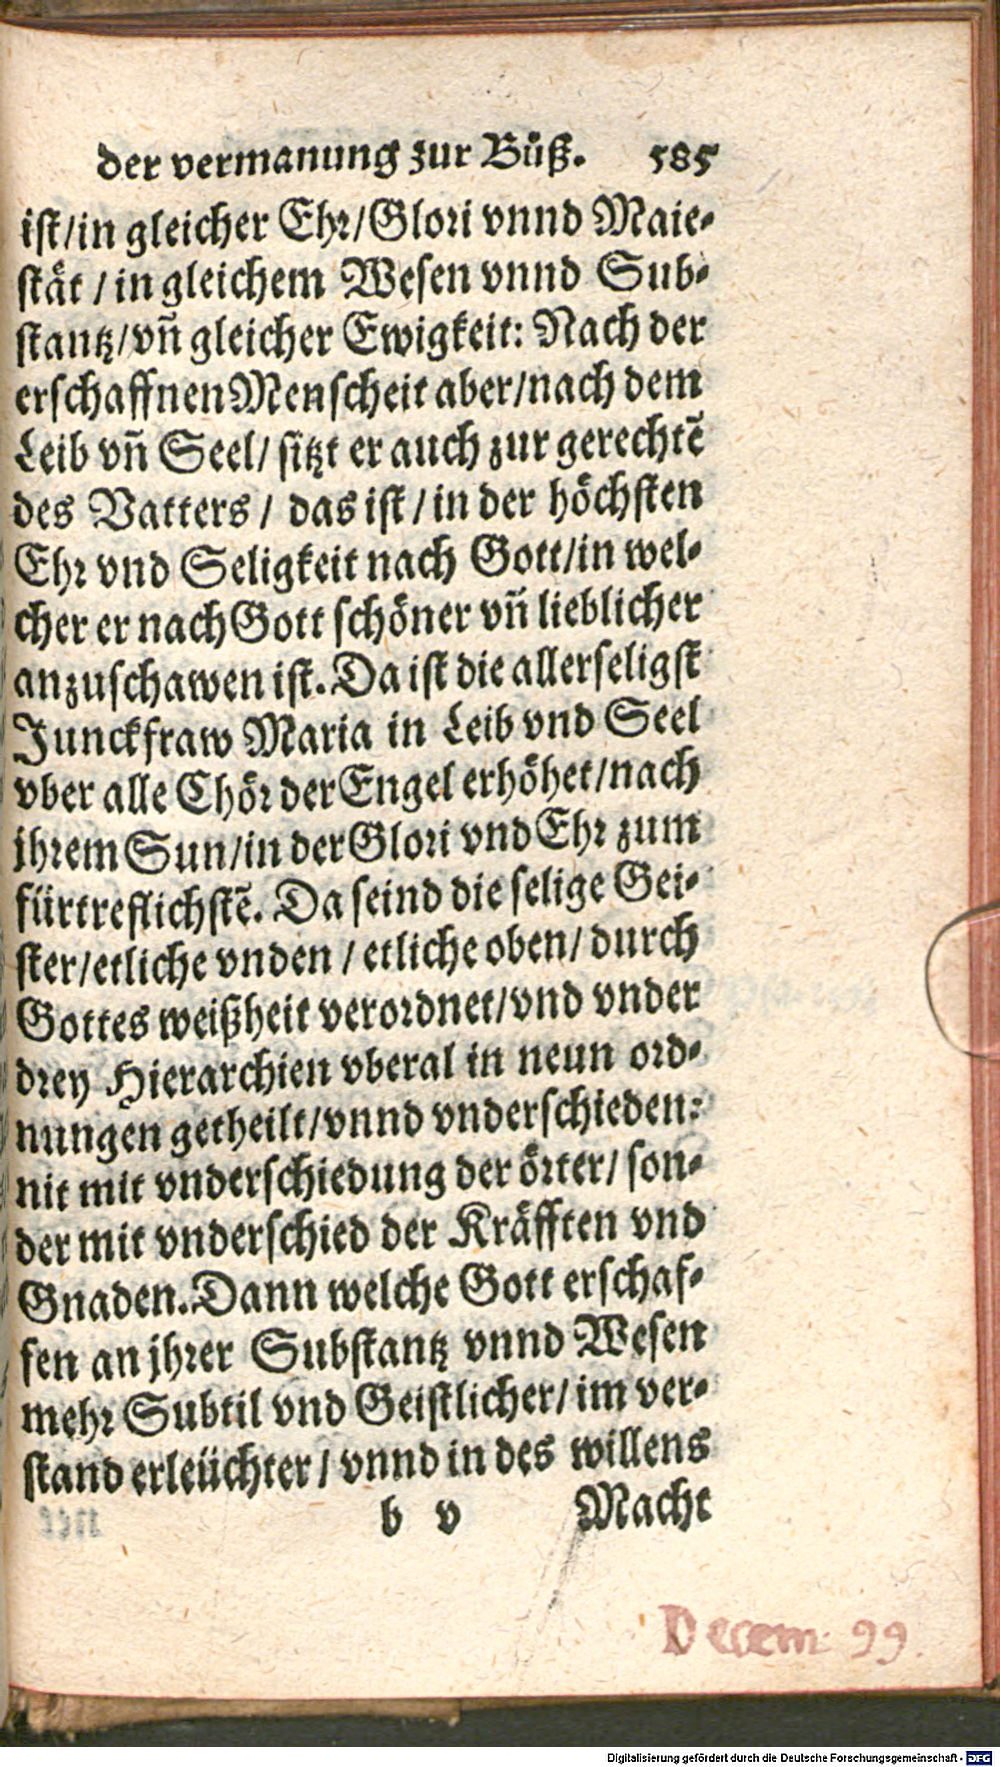 der vermanung zur Büß. 585
ist/in gleicher Ehr/Glori vnnd Maie-
stät / in gleichem Wesen vnnd Sub-
stantz/vñ gleicher Ewigkeit: Nach der
erschaffnen Menscheit aber/nach dem
Leib vñ Seel/ sitzt er auch zur gerechtẽ
des Vatters / das ist / in der höchsten
Ehr vnd Seligkeit nach Gott/in wel-
cher er nach Gott schöner vñ lieblicher
anzuschawen ist. Da ist die allerseligst
Junckfraw Maria in Leib vnd Seel
vber alle Chör der Engel erhöhet/nach
jhrem Sun/in der Glori vnd Ehr zum
fürtreflichstẽ. Da seind die selige Gei-
ster/etliche vnden / etliche oben/ durch
Gottes weißheit verordnet/vnd vnder
drey Hierarchien vberal in neun ord-
nungen getheilt/vnnd vnderschieden:
nit mit vnderschiedung der örter/ son-
der mit vnderschied der Kräfften vnd
Gnaden. Dann welche Gott erschaf-
fen an jhrer Substantz vnnd Wesen
mehr Subtil vnd Geistlicher/ im ver-
stand erleüchter / vnnd in des willens
b v Macht
Decem: 99.
Digitalisierung gefördert durch die Deutsche Forschungsgemeinschaft - DFG